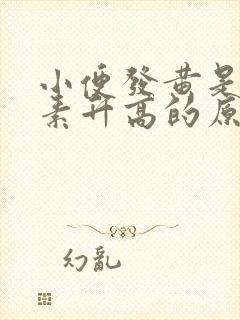 小便發黄是
素升高的原
幻亂